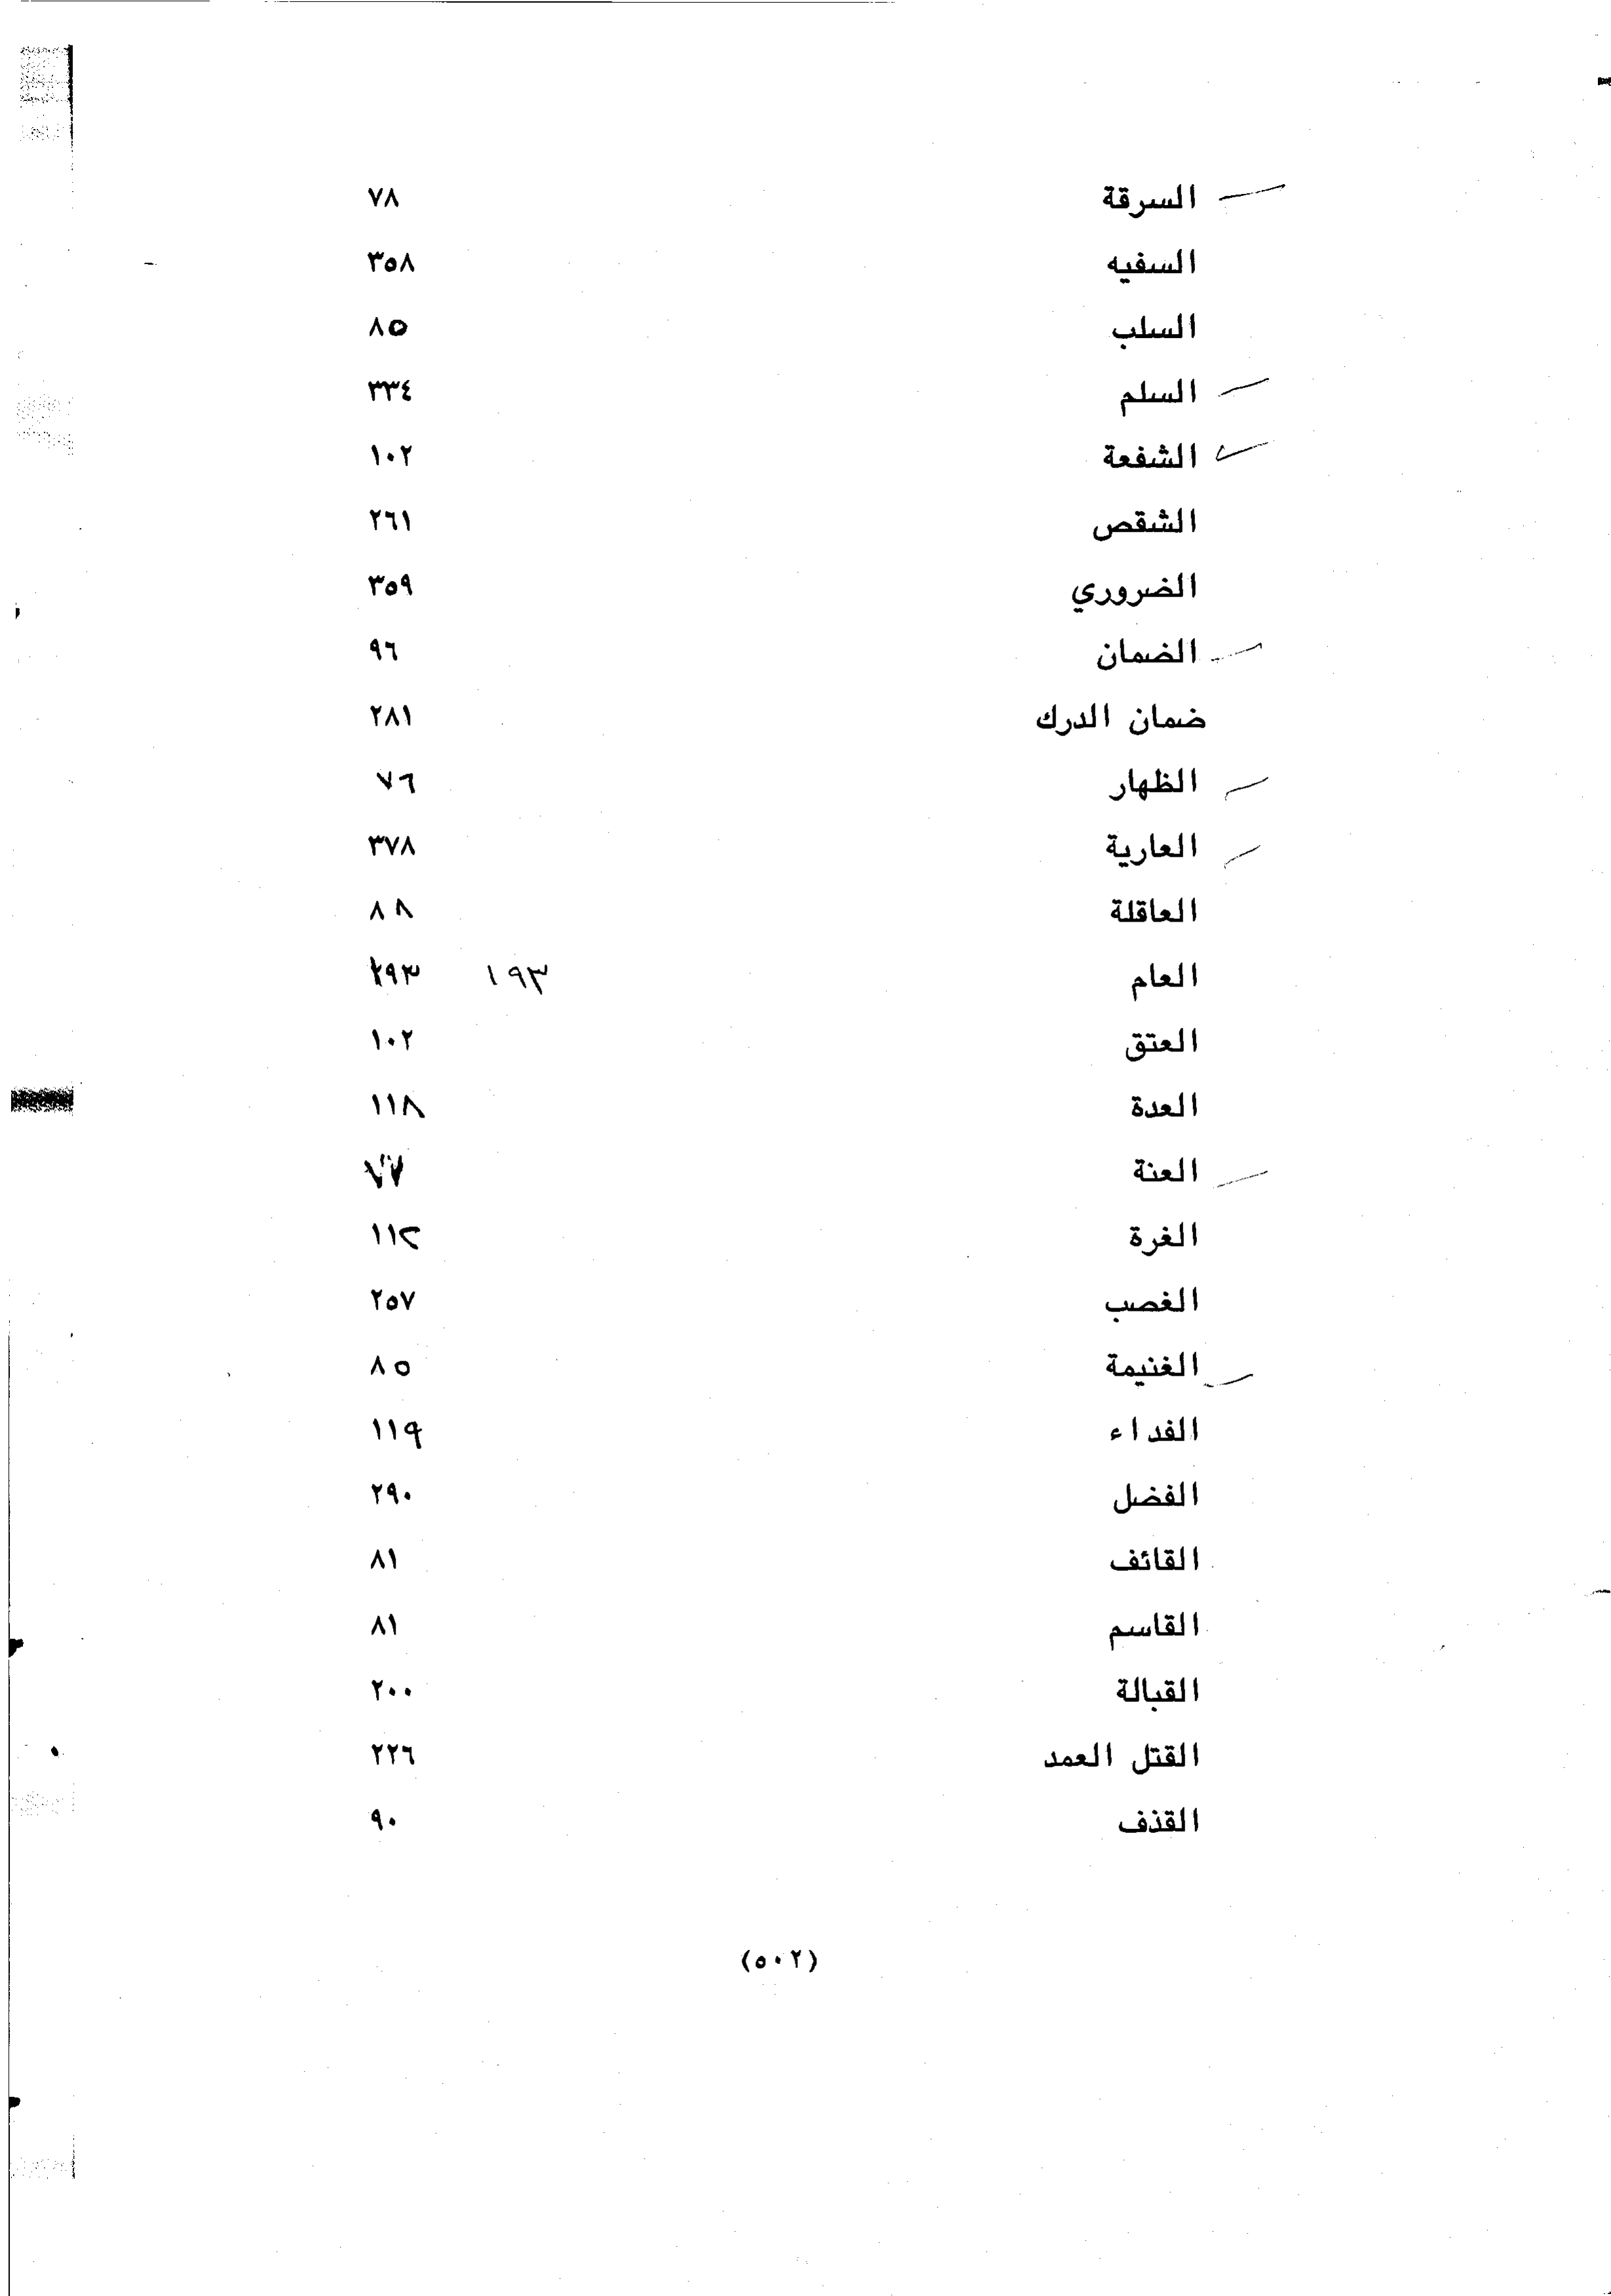 السرقة ٧٨
السفيه ٣٥٨
السلب ٨٥
السلم ٣٣٤
الشفعة ١٠٢
الشقص ٢٦١
الضروري ٣٥٩
الضمان ٩٦
ضمان الدرك ٢٨١
الظهار ٧٦
العارية ٣٧٨
العاقلة ٨٨
العام ١٩٣ ٢٩٣
العتق ١٠٢
العدة ١١٨
العنة ٧٧
الغرة ١١٢
الغصب ٢٥٧
الغنيمة ٨٥
الفداء ١١٩
الفضل ٢٩٠
القائف ٨١
القاسم ٨١
القبالة ٢٠٠
القتل العمد ٢٢٦
القذف ٩٠
(٥٠٢)